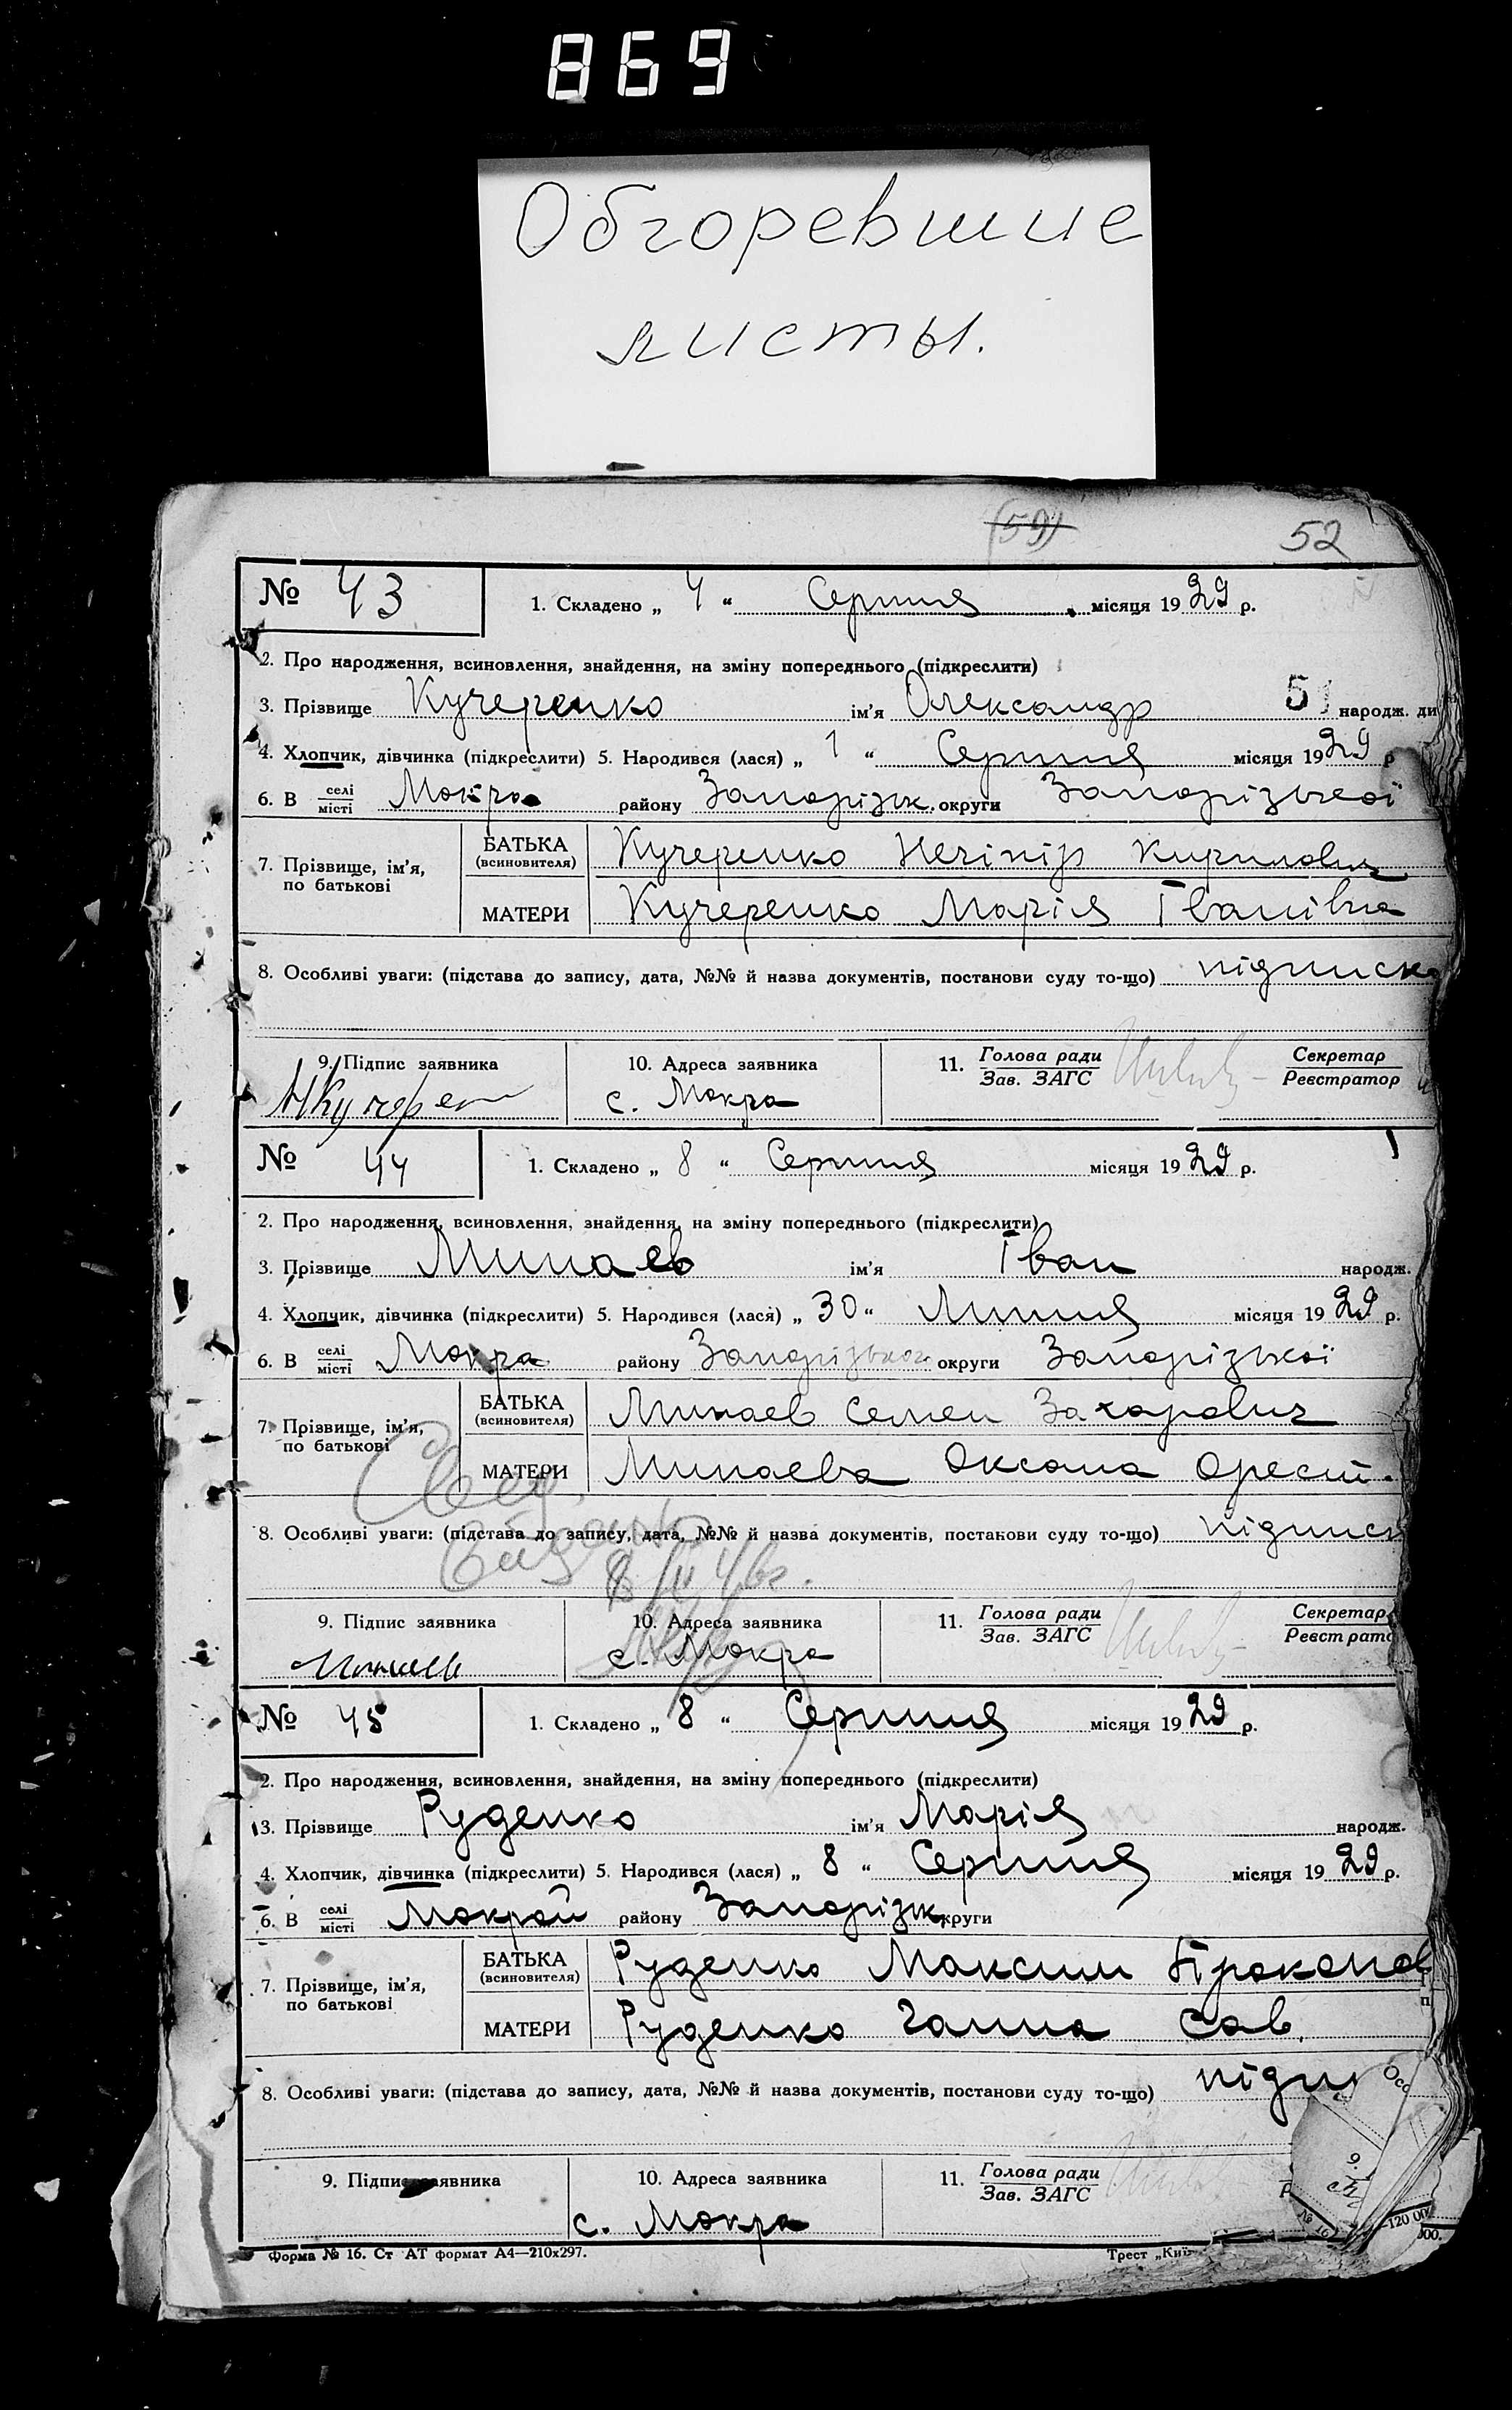 869
Обгоревшие
листы.
(59) 52
№ 43 1. Складено „ 4 “ Серпня місяця 1929 р.
2. Про народження, всиновлення, знайдення, на зміну попереднього (підкреслити)
3. Прізвище Кучеренко ім’я Олександр 5 народж. ди
4. Хлопчик, дівчинка (підкреслити) 5. Народився (лася) „ 1 “ Серпня місяця 1929 р
6. В селі/місті Мокра району Запорізьк. округи Запорізької
7. Прізвище, ім’я, по батькові БАТЬКА (всиновителя) Кучеренко Нечіпір Кирилович
МАТЕРИ Кучеренко Марія Іванівна
8. Особливі уваги: (підстава до запису, дата, №№ й назва документів, постанови суду то-що) підписка
9. Підпис заявника 10. Адреса заявника 11. Голова ради/Зав. ЗАГС Секретар/Реєстратор
с. Мокра
№ 44 1. Складено „ 8 “ Серпня місяця 1929 р.
2. Про народження, всиновлення, знайдення, на зміну попереднього (підкреслити)
3. Прізвище Минаев ім’я Іван народж.
4. Хлопчик, дівчинка (підкреслити) 5. Народився (лася) „ 30 “ Липня місяця 1929 р.
6. В селі/місті Мокра району Запорізького округи Запорізької
7. Прізвище, ім’я, по батькові БАТЬКА (всиновителя) Минаев Семен Захарович
МАТЕРИ Минаева Оксана Орест.
8. Особливі уваги: (підстава до запису, дата, №№ й назва документів, постанови суду то-що) підписк
9. Підпис заявника 10. Адреса заявника 11. Голова ради/Зав. ЗАГС Секретар
с. Мокра
№ 45 1. Складено „ 8 “ Серпня місяця 1929 р.
2. Про народження, всиновлення, знайдення, на зміну попереднього (підкреслити)
3. Прізвище Руденко ім’я Марія народж.
4. Хлопчик, дівчинка (підкреслити) 5. Народився (лася) „ 8 “ Серпня місяця 1929 р.
6. В селі/місті Мокрой району Запорізьк округи
7. Прізвище, ім’я, по батькові БАТЬКА (всиновителя) Руденко Максим Прокопов
МАТЕРИ Руденко Ганна Сав.
8. Особливі уваги: (підстава до запису, дата, №№ й назва документів, постанови суду то-що) підпи
9. Підпис заявника 10. Адреса заявника 11. Голова ради/Зав. ЗАГС
с. Мокра
Форма № 16. Ст АТ формат А4—210х297. Трест „Киї